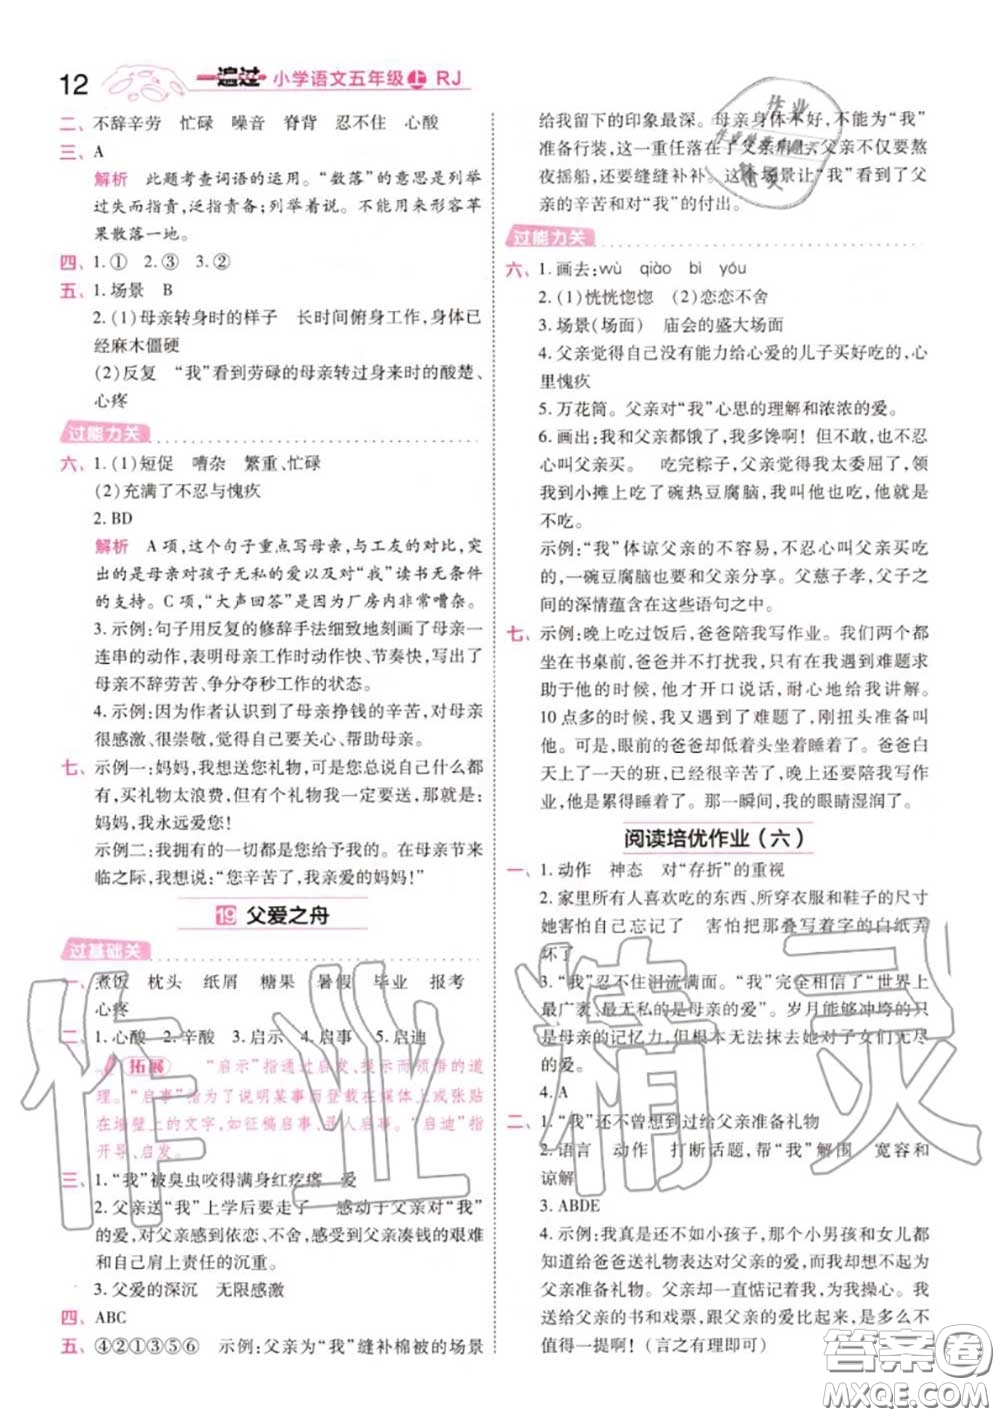 12 一遍过 小学语文五年级上 RJ
二、不辞辛劳 忙碌 噪音 脊背 忍不住 心酸
三、A
解析 此题考查词语的运用。“数落”的意思是列举
过失而指责,泛指责备;列举着说。不能用来形容苹
果散落一地。
四、1.① 2.③ 3.②
五、1.场景 B
2.(1)母亲转身时的样子 长时间俯身工作,身体已
经麻木僵硬
(2)反复 “我”看到劳碌的母亲转过身来时的酸楚、
心疼
过能力关
六、1.(1)短促 嘈杂 繁重、忙碌
(2)充满了不忍与愧疚
2.BD
解析 A项,这个句子重点写母亲,与工友的对比,突
出的是母亲对孩子无私的爱以及对“我”读书无条件
的支持。C项,“大声回答”是因为厂房内非常嘈杂。
3.示例:句子用反复的修辞手法细致地刻画了母亲一
连串的动作,表明母亲工作时动作快、节奏快,写出了
母亲不辞劳苦、争分夺秒工作的状态。
4.示例:因为作者认识到了母亲挣钱的辛苦,对母亲
很感激、很崇敬,觉得自己要关心、帮助母亲。
七、示例一:妈妈,我想送您礼物,可是您总说自己什么都
有,买礼物太浪费,但有个礼物我一定要送,那就是:
妈妈,我永远爱您!
示例二:我拥有的一切都是您给予我的。在母亲节来
临之际,我想说:“您辛苦了,我亲爱的妈妈!”
19 父爱之舟
过基础关
一、煮饭 枕头 纸屑 糖果 暑假 毕业 报考
心疼
二、1.心酸 2.辛酸 3.启示 4.启事 5.启迪
拓展 “启示”指通过启发、提示而领悟的道
理。“启事”指为了说明某事而登载在媒体上或张贴
在墙壁上的文字,如征稿启事、寻人启事。“启迪”指
开导、启发。
三、1.“我”被臭虫咬得满身红疙瘩 爱
2.父亲送“我”上学后要走了 感动于父亲对“我”
的爱,对父亲感到依恋、不舍,感受到父亲凑钱的艰难
和自己肩上责任的沉重。
3.父爱的深沉 无限感激
四、ABC
五、④②①③⑤⑥ 示例:父亲为“我”缝补棉被的场景
给我留下的印象最深。母亲身体不好,不能为“我”
准备行装,这一重任落在了父亲肩膀,父亲不仅要熬
夜摇船,还要缝缝补补。这个场景让“我”看到了父
亲的辛苦和对“我”的付出。
过能力关
六、1.画去:wù qiào bì yóu
2.(1)恍恍惚惚 (2)恋恋不舍
3.场景(场面) 庙会的盛大场面
4.父亲觉得自己没有能力给心爱的儿子买好吃的,心
里愧疚
5.万花筒。父亲对“我”心思的理解和浓浓的爱。
6.画出:我和父亲都饿了,我多馋啊!但不敢,也不忍
心叫父亲买。 吃完粽子,父亲觉得我太委屈了,领
我到小摊上吃了碗热豆腐脑,我叫他也吃,他就是
不吃。
示例:“我”体谅父亲的不容易,不忍心叫父亲买吃
的,一碗豆腐脑也要和父亲分享。父慈子孝,父子之
间的深情蕴含在这些语句之中。
七、示例:晚上吃过饭后,爸爸陪我写作业。我们两个都
坐在书桌前,爸爸并不打扰我,只有在我遇到难题求
助于他的时候,他才开口说话,耐心地给我讲解。
10点多的时候,我又遇到了难题了,刚扭头准备叫
他。可是,眼前的爸爸却低着头坐着睡着了。爸爸白
天上了一天的班,已经很辛苦了,晚上还要陪我写作
业,他是累得睡着了。那一瞬间,我的眼睛湿润了。
阅读培优作业(六)
一、1.动作 神态 对“存折”的重视
2.家里所有人喜欢吃的东西、所穿衣服和鞋子的尺寸
她害怕自己忘记了 害怕把那叠写着字的白纸弄
坏了
3.“我”忍不住泪流满面。“我”完全相信了“世界上
最广袤、最无私的是母亲的爱”。岁月能够冲垮的只
是母亲的记忆力,但根本无法抹去她对子女们无尽
的爱。
4.A
二、1.“我”还不曾想到过给父亲准备礼物
2.语言 动作 打断话题,帮“我”解围 宽容和
谅解
3.ABDE
4.示例:我真是还不如小孩子,那个小男孩和女儿都
知道给爸爸送礼物表达对父亲的爱,而我却想不起给
父亲准备礼物。父亲却一直惦记着我、想着我。我
送给父亲的书和戏票,跟父亲的爱比起来,是多么不
值得一提啊!(言之有理即可)
作业精灵
答案圈
MXQE.COM